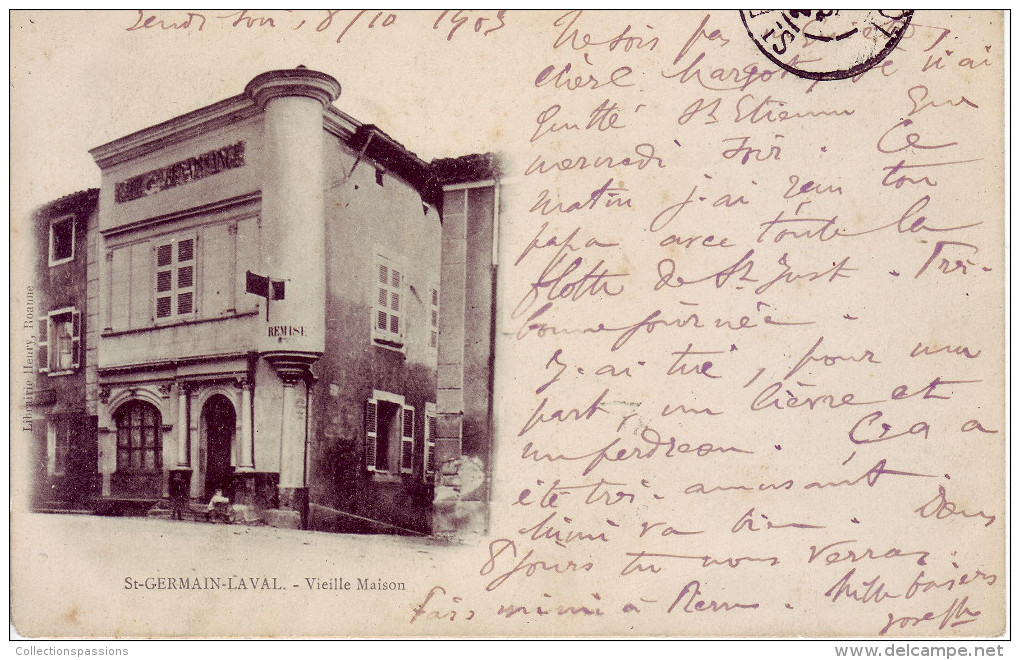 Jeudi soir, 8/10 1903
Ne sois pas
chère Margot, je n'ai
quitté St Etienne que
mercredi soir. Ce
matin j'ai vu ton
papa avec toute la
flotte de St Just. Très
bonne journée.
J'ai tué, pour ma
part, un lièvre et
un perdreau. Cela a
été très amusant.
Mimi va bien. Dans
8 jours tu nous verras.
Fais mimi à Pierre. Mille baisers
Joseph
REMISE
Librairie Henry, Roanne
St-GERMAIN-LAVAL. - Vieille Maison
Collectionspassions
http://www.delcampe.net